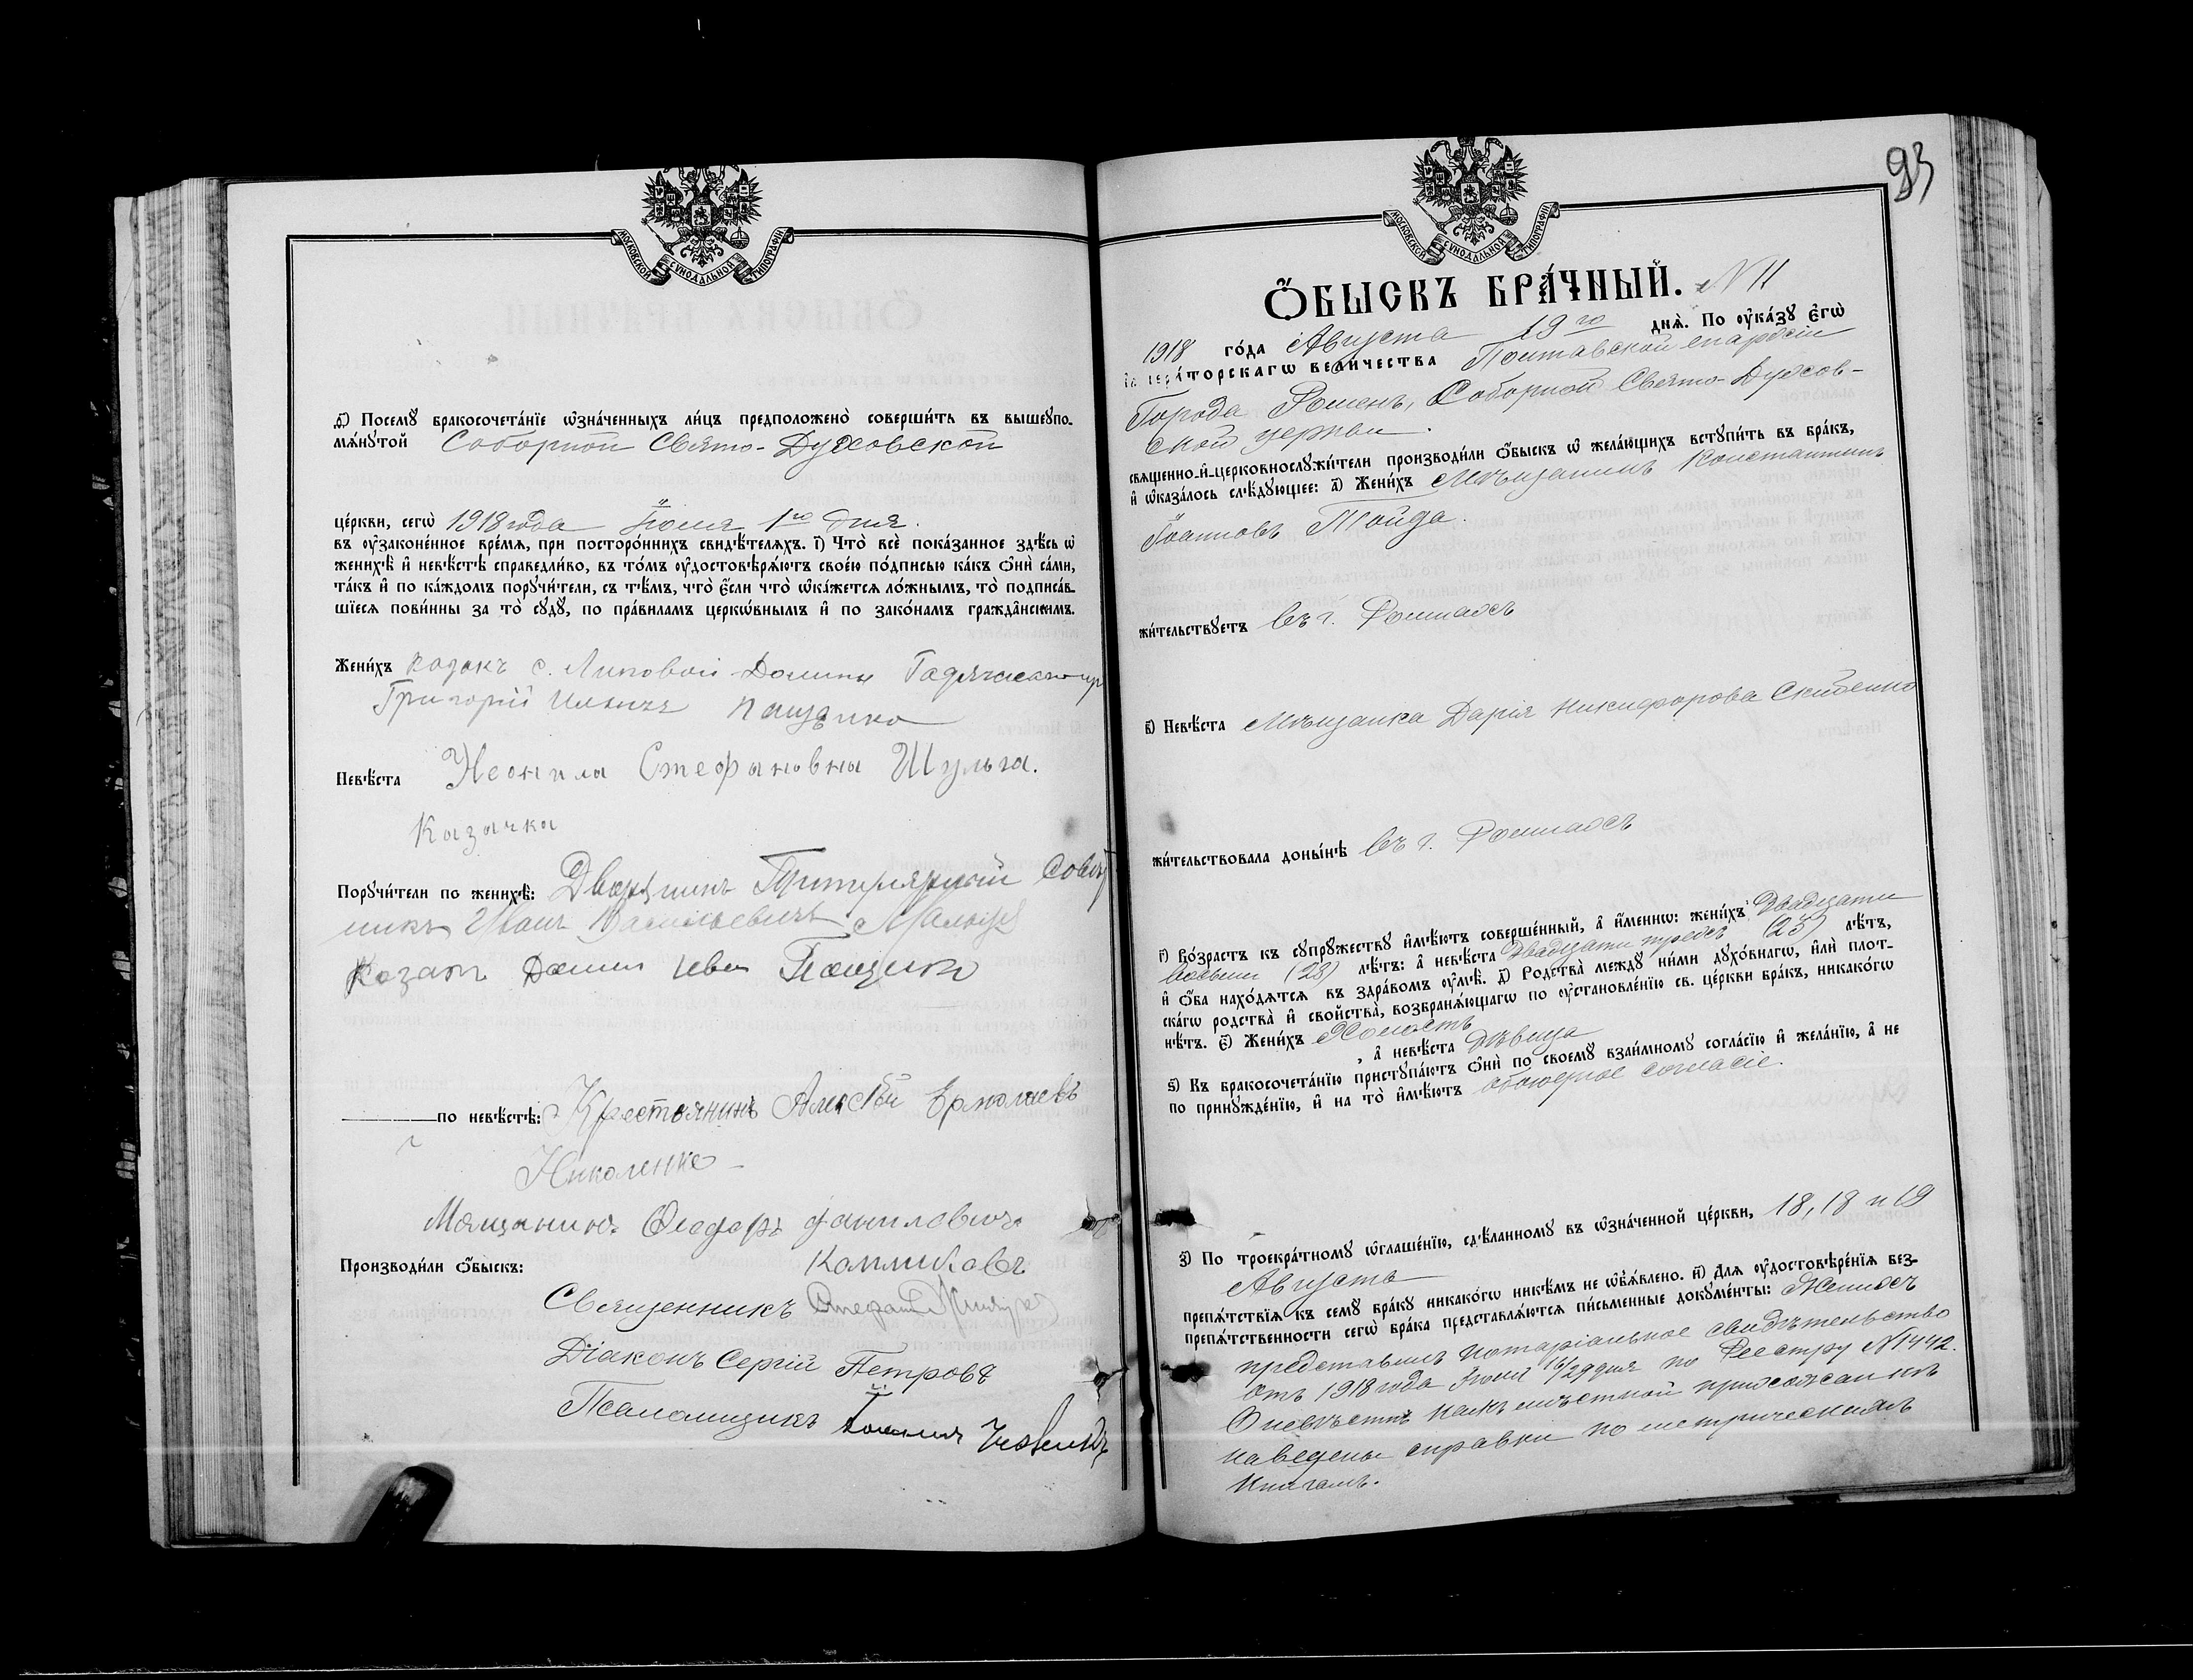 МОСКОВСКОЙ СѴНОДАЛЬНОЙ ТИПОГРАФІИ
ѳ҃) Посемꙋ бракосочета́нїе ѡ҆зна́ченныхъ ли́цъ предположено̀ соверши́ть въ вышеꙋпо-
мѧ́нꙋтой Соборной Свято-Духовской
це́ркви, сегѡ̀ 1918 года Іюля 1го дня.
въ ᲂу҆законе́нное вре́мѧ, при посторо́ннихъ свидѣ́телѧхъ. і҃) Что̀ всѐ пока́занное здѣ́сь ѡ҆
женихѣ̀ и҆ невѣ́стѣ справедли́во, въ то́мъ ᲂу҆достовѣрѧ́ютъ свое́ю по́дписью ка́къ ѻ҆нѝ са́ми,
та́къ и҆ по ка́ждомъ порꙋчи́тели, съ тѣ́мъ, что̀ є҆́сли что̀ ѡ҆ка́жетсѧ ло́жнымъ, то̀ подписа́в-
шїесѧ пови́нны за то̀ сꙋдꙋ̀, по пра́виламъ церкѡ́внымъ и҆ по зако́намъ гражда́нскимъ.
Жени́хъ Козакъ с. Липовой Долины Гадячскаго
Григорій Ильичъ Пащенко
Невѣ́ста Неонила Стефановна Шульга.
Казачка
Порꙋчи́тели по женихѣ̀: Дворянинъ Титулярный Совѣт
никъ Иванъ Васильевичъ
Козакъ Пащенко
по невѣ́стѣ: Крестьянинъ Алексѣй Ермолаевъ
Николенко
Мещанинъ Феодоръ Даниловичъ
Калмыковъ
Производи́ли ѻ҆́быскъ:
Священникъ Стефанъ
Діаконъ Сергій Петровъ
Псаломщикъ Іоаннъ
93
МОСКОВСКОЙ СѴНОДАЛЬНОЙ ТИПОГРАФІИ
Ѻ҆́БЫСКЪ БРА́ЧНЫЙ. № 11
1918 го́да Августа 19го днѧ̀. По ᲂу҆ка́зꙋ є҆гѡ̀
и҆мпера́торскагѡ вели́чества Полтавской епархіи
Города Роменъ, Соборной Свято-Духов-
ской церкви.
свѧще́нно-и҆-церковнослꙋжи́тели производи́ли ѻ҆́быскъ ѡ҆ жела́ющихъ встꙋпи́ть въ бра́къ,
и҆ ѡ҆каза́лось слѣ́дꙋющее: а҃) Жени́хъ Мѣщанинъ Константинъ
Іоанновъ Тойда.
жи́тельствꙋетъ въ г. Ромнахъ
в҃) Невѣ́ста Мѣщанка Дарія Никифорова Скиденко
жи́тельствовала доны́нѣ въ г. Ромнахъ
г҃) Во́зрастъ къ сꙋпрꙋ́жествꙋ и҆мѣ́ютъ соверше́нный, а҆ и҆́меннѡ: жени́хъ Двадцати
восьми (28) лѣ́тъ: а҆ невѣ́ста Двадцати трехъ (23) лѣ́тъ,
и҆ ѻ҆́ба нахо́дѧтсѧ въ здра́вомъ ᲂу҆мѣ̀. д҃) Родства̀ междꙋ̀ ни́ми дꙋхо́внагѡ, и҆лѝ плот-
ска́гѡ родства̀ и҆ сво́йства, возбранѧ́ющагѡ по ᲂу҆становле́нїю св. це́ркви бра́къ, никако́гѡ
нѣ́тъ. є҃) Жени́хъ Холостъ
, а҆ невѣ́ста Дѣвица
ѕ҃) Къ бракосочета́нїю пристꙋпа́ютъ ѻ҆нѝ по своемꙋ̀ взаи́мномꙋ согла́сїю и҆ жела́нїю, а҆ не
по принꙋжде́нїю, и҆ на то̀ и҆мѣ́ютъ обоюдное согласіе.
з҃) По троекра́тномꙋ ѡ҆глаше́нїю, сдѣ́ланномꙋ въ ѡ҆зна́ченной це́ркви, 18, 18 и 19
Августа
препѧ́тствїѧ къ семꙋ̀ бра́кꙋ никако́гѡ никѣ́мъ не ѡ҆б̾ѧ́влено. и҃) Длѧ̀ ᲂу҆достовѣре́нїѧ без-
препѧ́тственности сегѡ̀ бра́ка представлѧ́ютсѧ пи́сьменные докꙋме́нты: Женихъ
представилъ нотаріальное свидѣтельство
отъ 1918 года Іюня 16/29 дня по Реестру № 1442.
О невѣстѣ какъ мѣстной прихожанкѣ
наведены справки по метрическимъ
книгамъ.